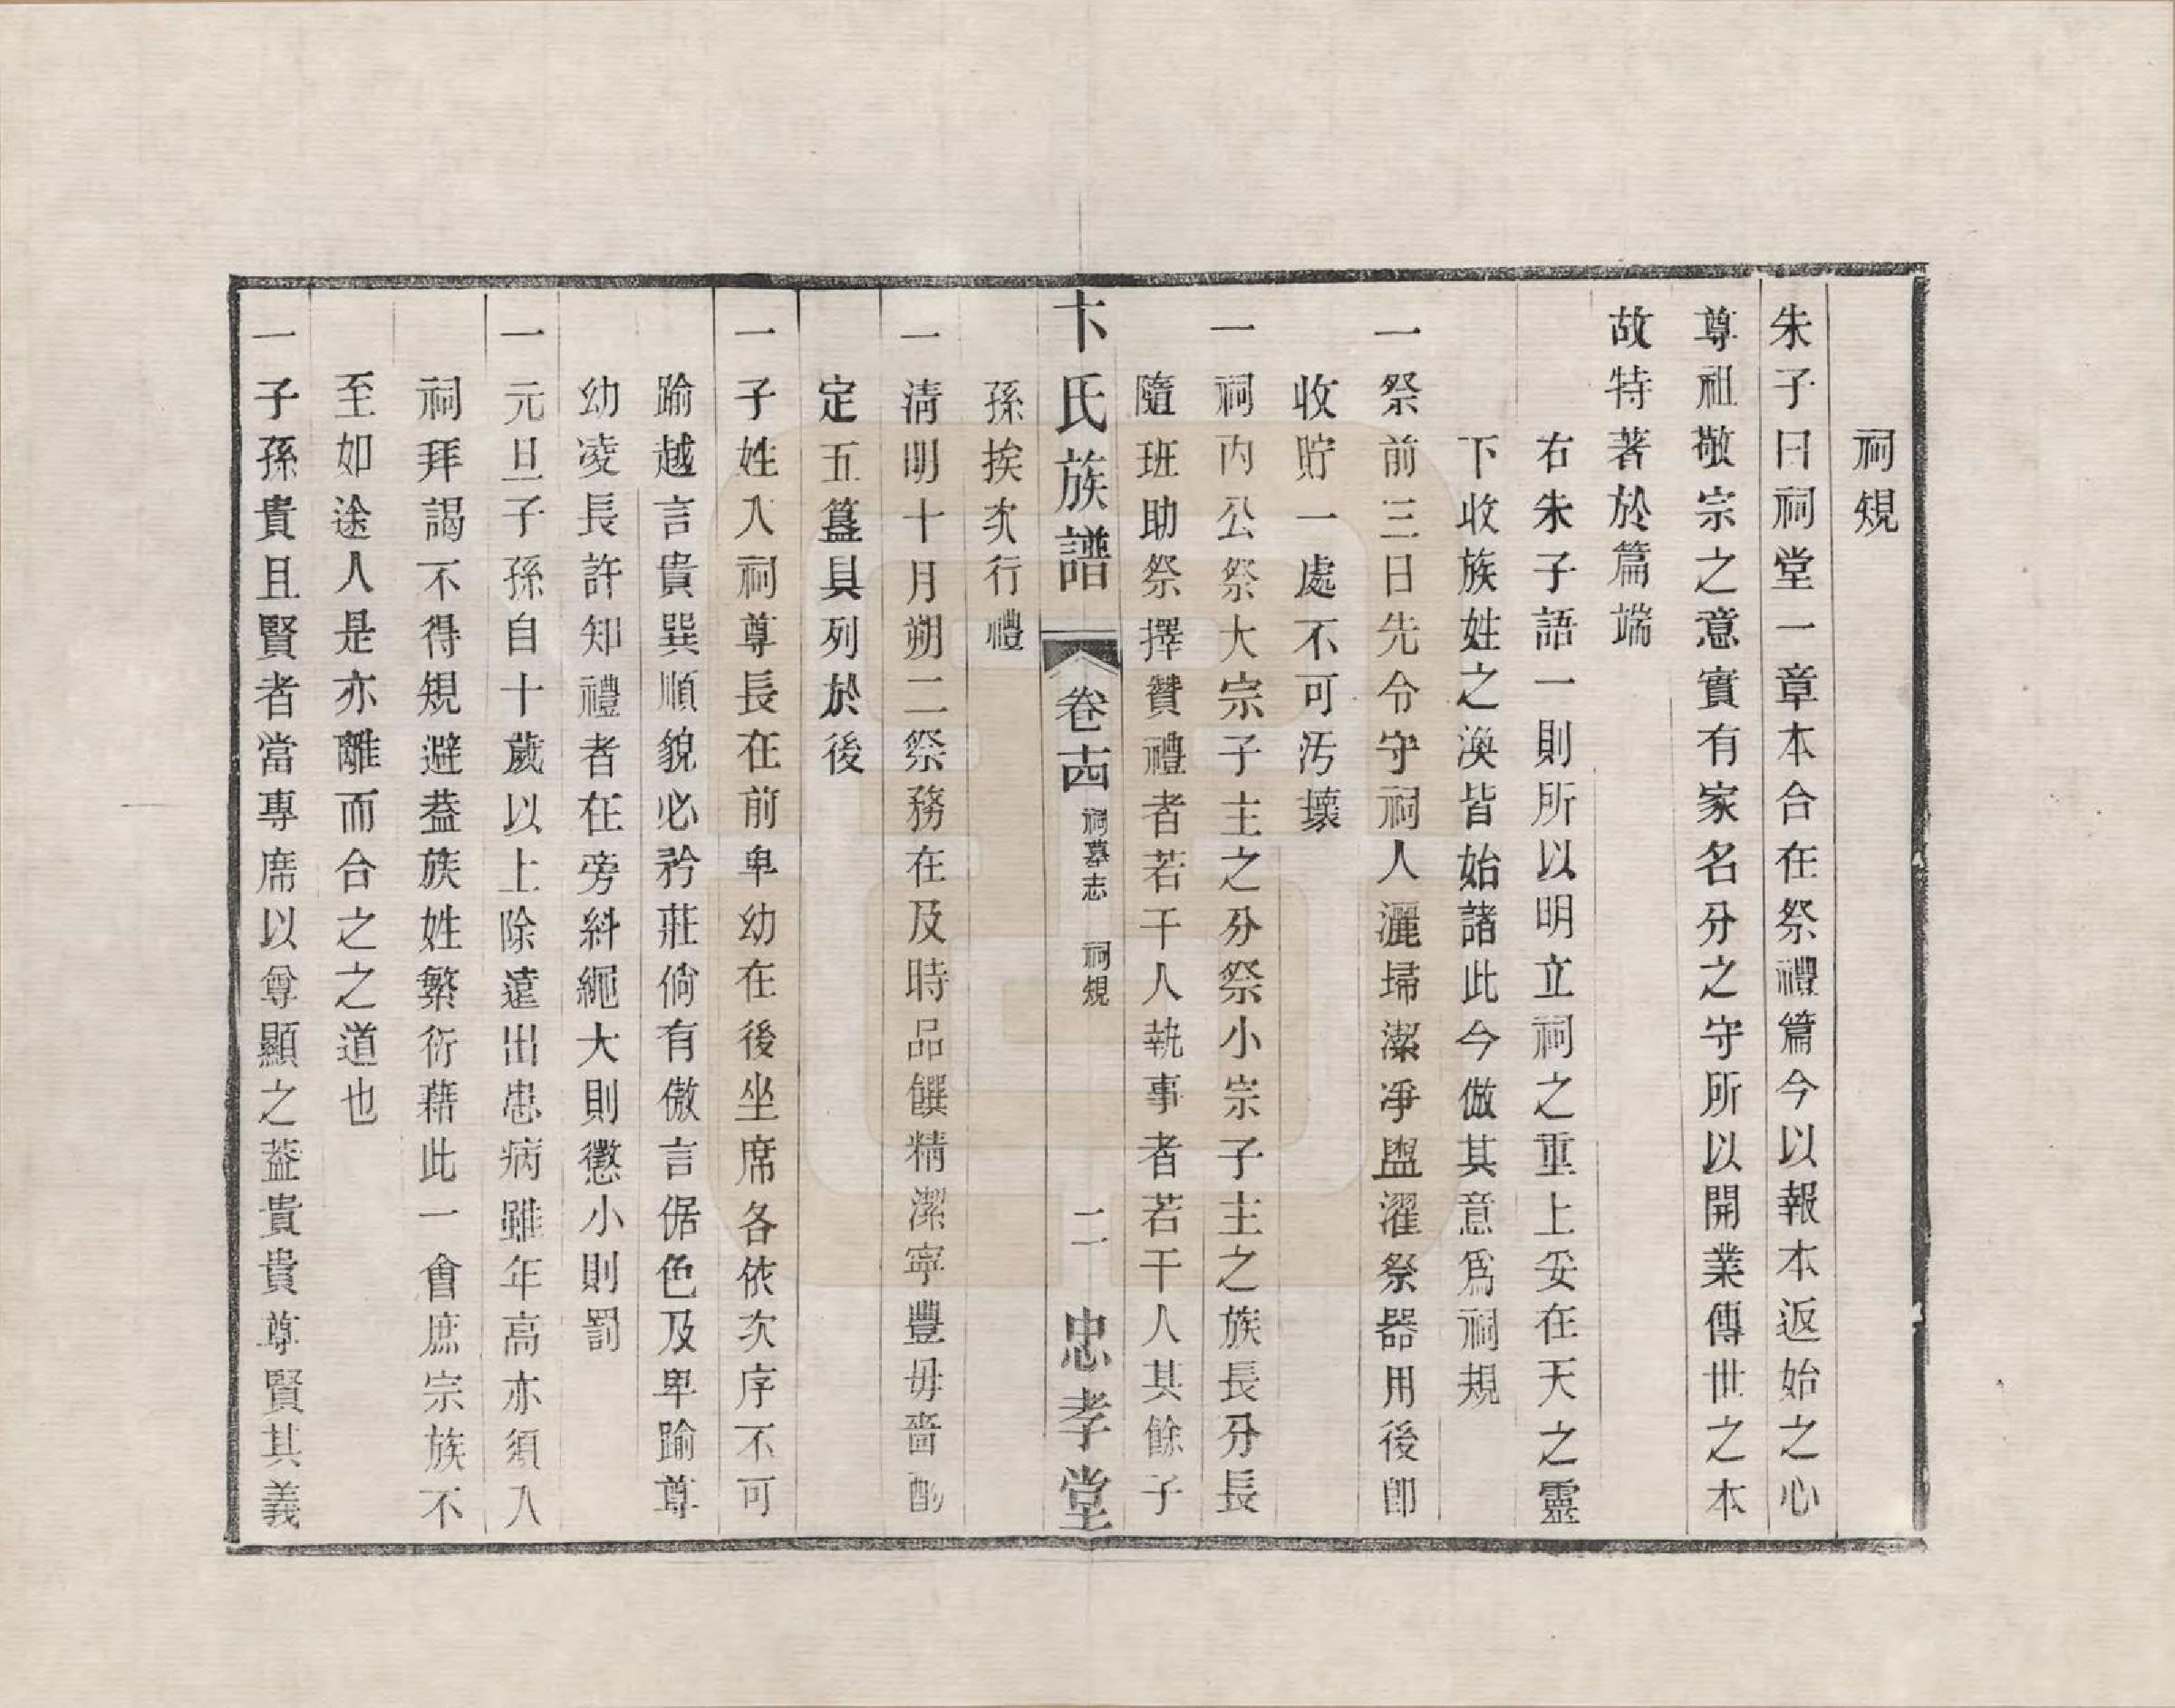 祠規
朱子曰祠堂一章本合在祭禮篇今以報本返始之心
尊祖敬宗之意實有家名分之守所以開業傳世之本
故特著於篇端
右朱子語一則所以明立祠之重上妥在天之靈
下收族姓之渙皆始諸此今倣其意爲祠規
一祭前三日先令守祠人灑掃潔凈盥濯祭器用後即
收貯一處不可汚壞
一祠内公祭大宗子主之分祭小宗子主之族長分長
隨班助祭擇贊禮者若干人執事者若干人其餘子
孫挨次行禮
卞氏族譜 卷十四 祠墓志 祠規 二 忠孝堂
一清明十月朔二祭務在及時品饌精潔寧豐毋嗇酌
定五簋具列於後
一子姓入祠尊長在前卑幼在後坐席各依次序不可
踰越言貴巽順貌必矜莊倘有傲言倨色及卑踰尊
幼凌長許知禮者在旁糾繩大則懲小則罰
一元旦子孫自十歲以上除遠出患病雖年高亦須入
祠拜謁不得規避葢族姓繁衍藉此一會庶宗族不
至如途人是亦離而合之之道也
一子孫貴且賢者當專席以尊顯之葢貴貴尊賢其義